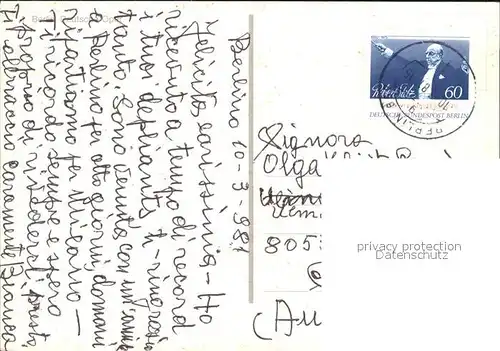 Berlin, Deutsche Oper
Berlino 10-3-981
Felicita carissima - Ho
ricevuto a tempo di record
i tuoi depliants, ti ringrazio
tanto. Sono venuta con un'amica
a Berlino per otto giorni, domani
ripartiamo per Milano -
ti ricordo sempre e spero
proprio di rivederci presto,
Ti abbraccio caramente Bianca
Robert Stolz
60
DEUTSCHE BUNDESPOST BERLIN
BERLIN
Signora
Olga
805
(Au
privacy protection
Datenschutz